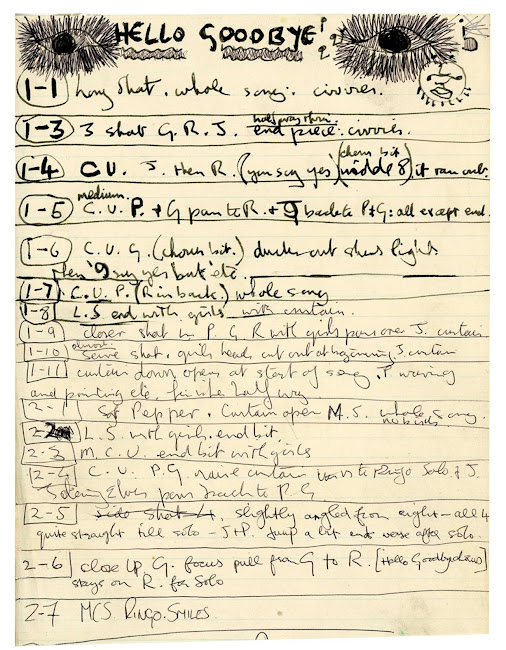 HELLO GOODBYE!
1-1 long shot. whole song: civvies.
1-3 3 shot G. R. J. half way thru
end piece: civvies.
1-4 C U. J. then R. (you say yes) (chorus bit)
(middle 8) it ran out.
1-5 medium C. U. P. + G pan to R. + back to P + G: all except end.
1-6 C. U. G. (chorus bit.) ducks out shows lights
then 'I say yes but' etc.
1-7 C. U. P. (R in back.) whole song
1-8 L. S end with girls with curtain.
1-9 closer shot in P. G R with girls pans over J. curtain
1-10 almost same shot. girls heads cut out at beginning J. curtain
1-11 curtain down, opens at start of song, P waving
and pointing etc, finishes half way
2-1 Sgt Pepper. Curtain open M. S. whole song.
no birds.
2-2 L. S. with girls. end bit
2-3 M. C. U. end bit with girls
2-4 C. U. P. G. curtain to Ringo Solo & J.
Elvis pans back to P. G
2-5 side shot 4. slightly angled from right - all 4
quite straight till solo - J + P. jump a bit end verse after solo.
2-6 close up. G. focus pull from G to R. [Hello Goodbye]
stays on R. for Solo
2-7 MCS RINGO. SMILES